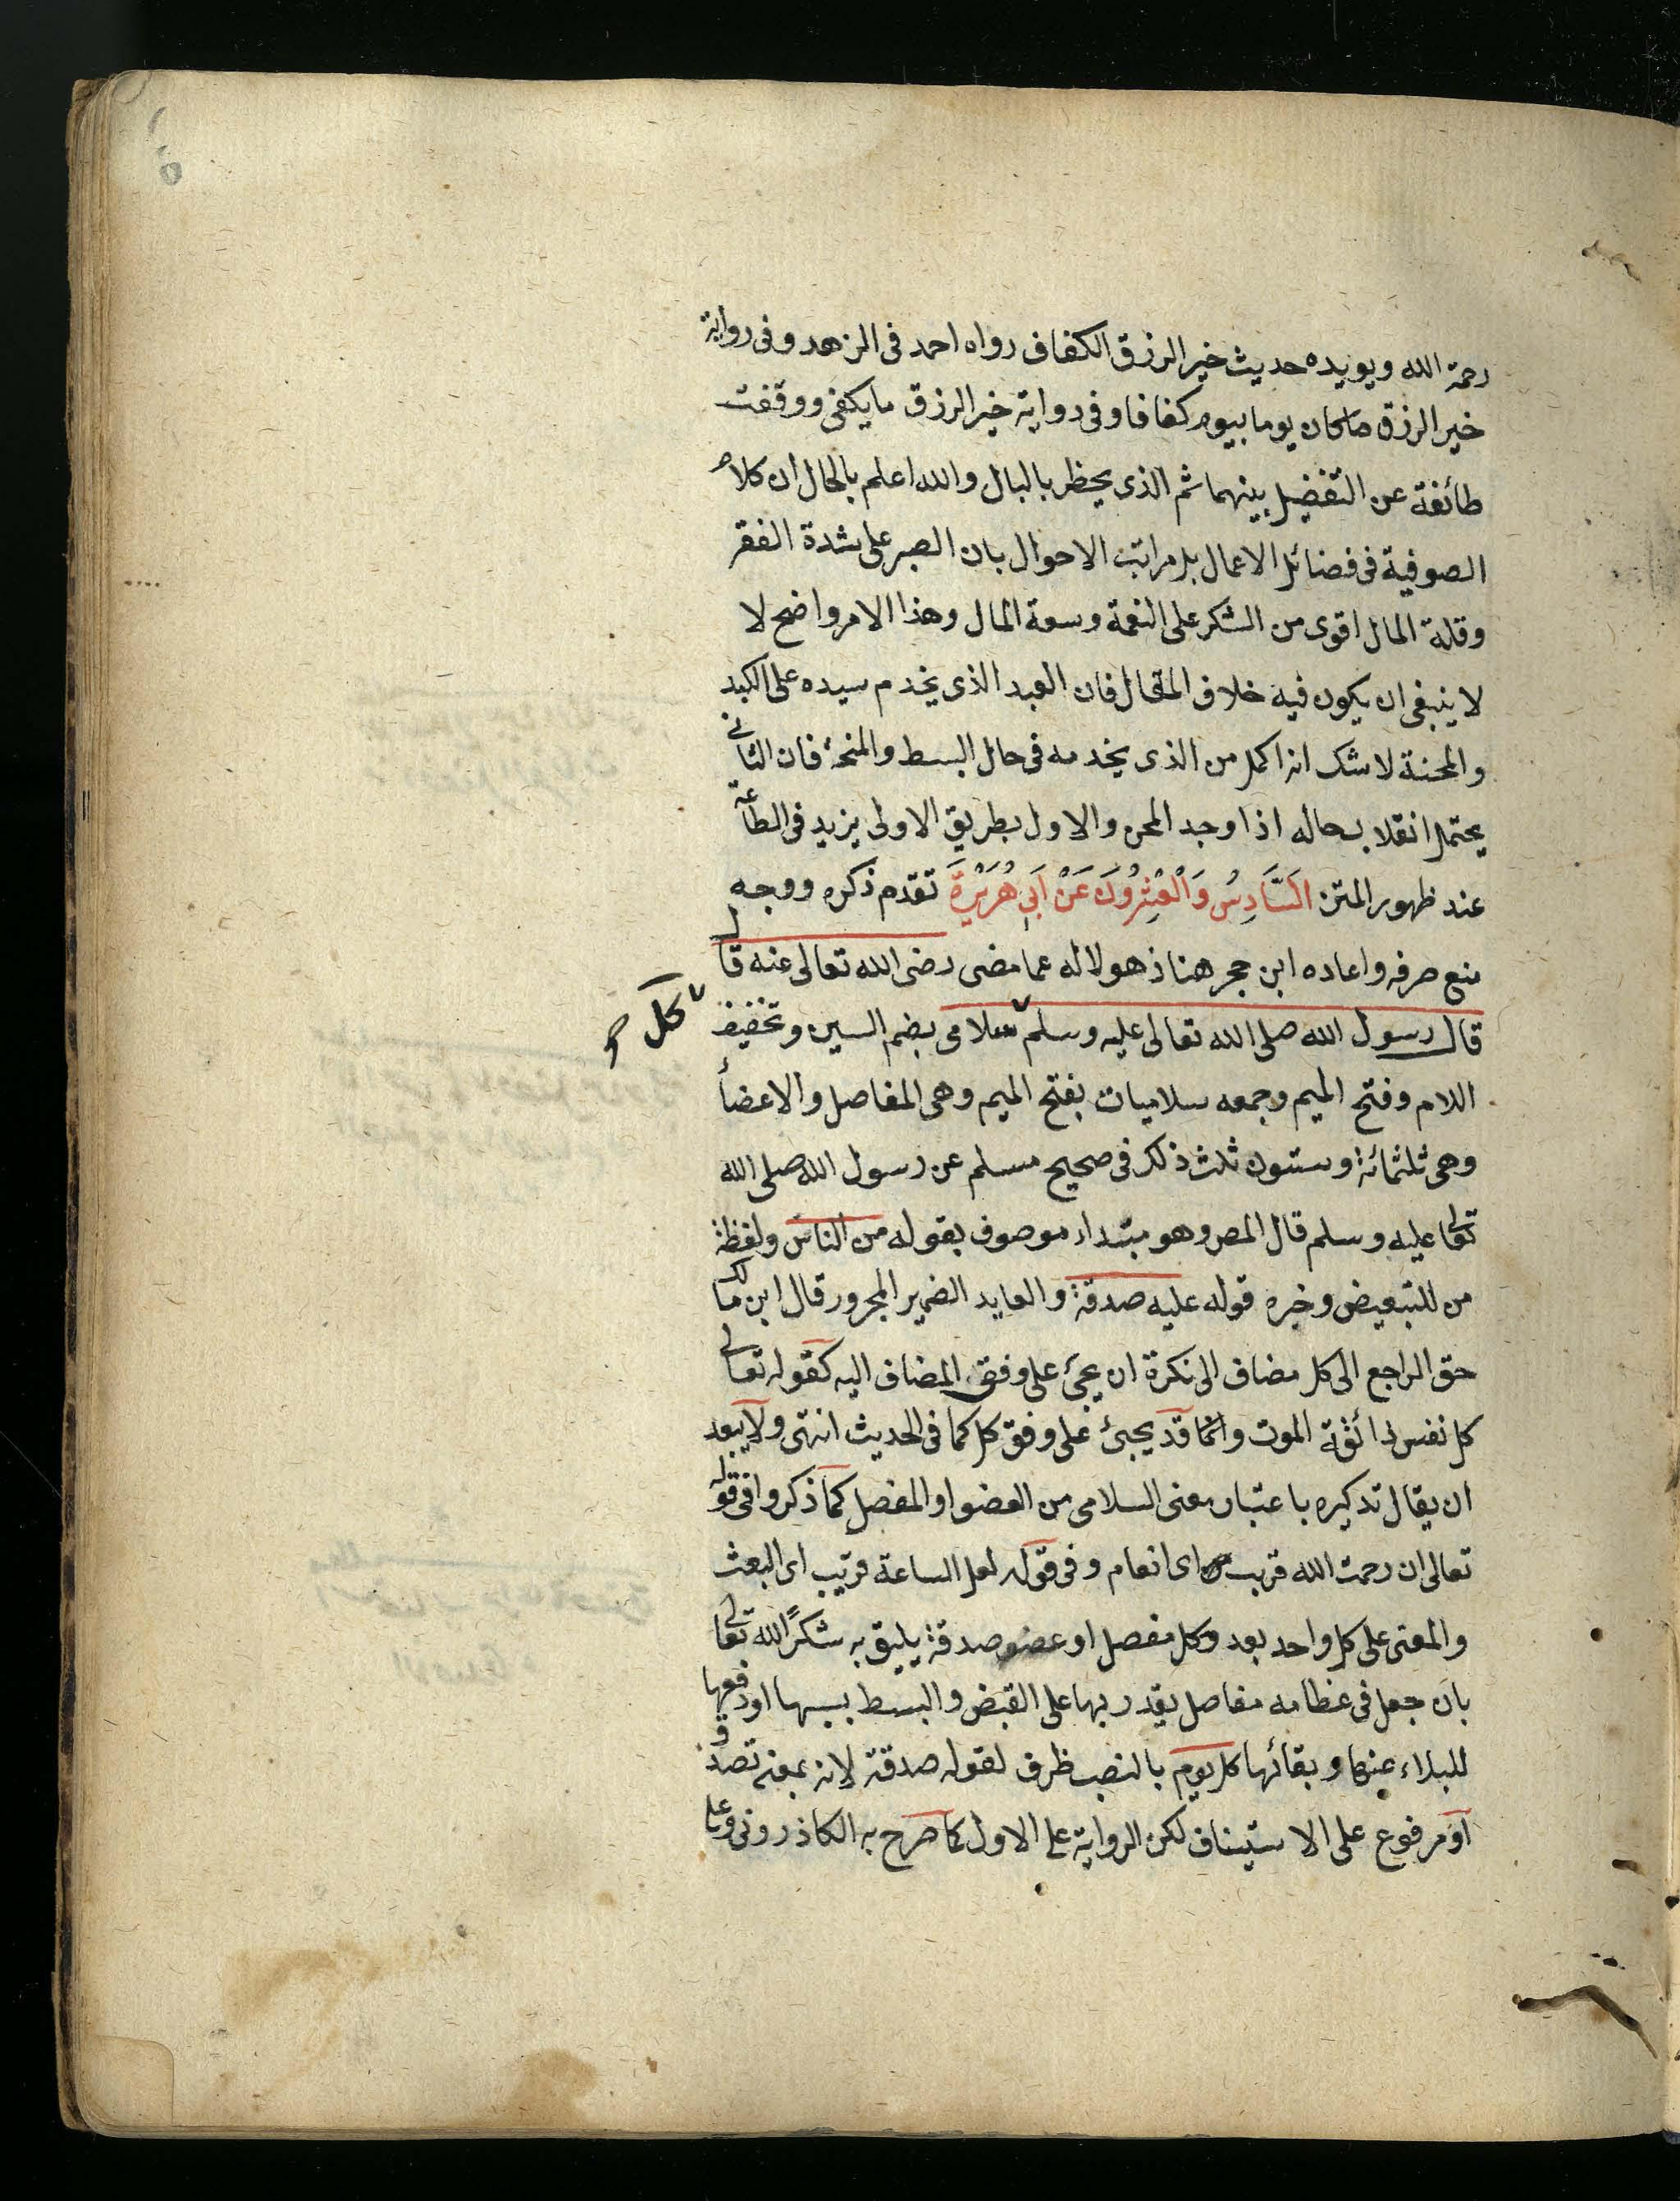 رحمة الله ويويده حديث خير الرزق الكفاف رواه احمد فى الزهد وفى رواية
خير الرزق ما كان يوما بيوم كفافا وفى رواية خير الرزق ما يكفى ووقفت
طائفة عن التفضيل بينهما ثم الذى يخطر بالبال والله اعلم بالحال ان كلام
الصوفية فى فضائل الاعمال بل مراتب الاحوال بان الصبر على شدة الفقر
وقلة المال اقوى من الشكر على النعمة وسعة المال وهذا الامر واضح لا
لا ينبغى ان يكون فيه خلاف المقال فان العبد الذى يخدم سيده على الكبد
والمحنة لا شك انه اكمل من الذى يخدمه فى حال البسط والمنحة فان الثانى
يحتمل انقلاب حاله اذا وجد المحن والاول بطريق الاولى يزيد فى الطاعة
عند ظهور المتن اَلسَّادِسُ وَالْعِشْرُونَ عَنْ اَبِي هُرَيْرَةَ تقدم ذكره ووجه
منع صرفه واعاده ابن حجر هنا ذهولا له عما مضى رضى الله تعالى عنه قال
قال رسول الله صلى الله تعالى عليه وسلم سلامى بضم السين وتخفيف
كل صح
اللام وفتح الميم وجمعه سلاميات بفتح الميم وهى المفاصل والاعضاء
وهى ثلثمائة وستون ثلث ذلك فى صحيح مسلم عن رسول الله صلى الله
تعالى عليه وسلم قال المص وهو مبتداء موصوف بقوله من الناس ولفظة
من للتبعيض وخبره قوله عليه صدقة والعايد الضمير المجرور قال ابن مالك
حق الراجع الى كل مضاف الى نكرة ان يجئ على وفق المضاف اليه كقوله تعالى
كل نفس ذائقة الموت وانما قد يجئ على وفق كل كما فى الحديث انتهى ولا يبعد
ان يقال تذكيره باعتبار معنى السلامى من العضو او المفصل كما ذكروا فى قوله
تعالى ان رحمت الله قريب اى انعام وفى قوله لعل الساعة قريب اى البعث
والمعنى على كل واحد بعد وكل مفصل او عضو صدقة يليق به شكرًا لله تعالى
بان جعل فى عظامه مفاصل يقدر بها على القبض والبسط بسببها او دفعها
للبلاء عنها وبقائها كل يوم بالنصب ظرف لقوله صدقة لانه بمعنى تصدق
او مرفوع على الاستيناف لكن الرواية على الاول كما صرح به الكاذرونى وعلى